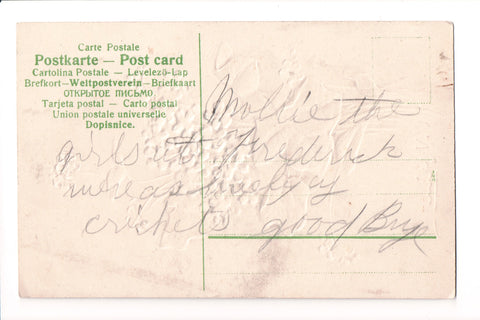 Carte Postale
Postkarte — Post card
Cartolina Postale — Levelező-Lap
Brefkort–Weltpostverein–Briefkaart
ОТКРЫТОЕ ПИСЬМО
Tarjeta postal — Carto postal
Union postale universelle
Dopisnice.
Mollie the
girls at Frederick
were as lively as
crickets good Bye